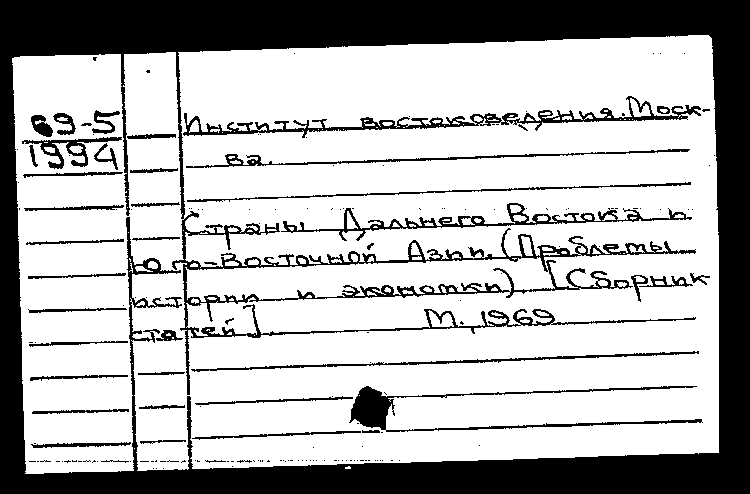 69-5
1994
Институт востоковедения. Моск-
ва.
Страны Дальнего Востока и
Юго-Восточной Азии. (Проблемы
истории и экономки). [Сборник
статей]. М., 1969